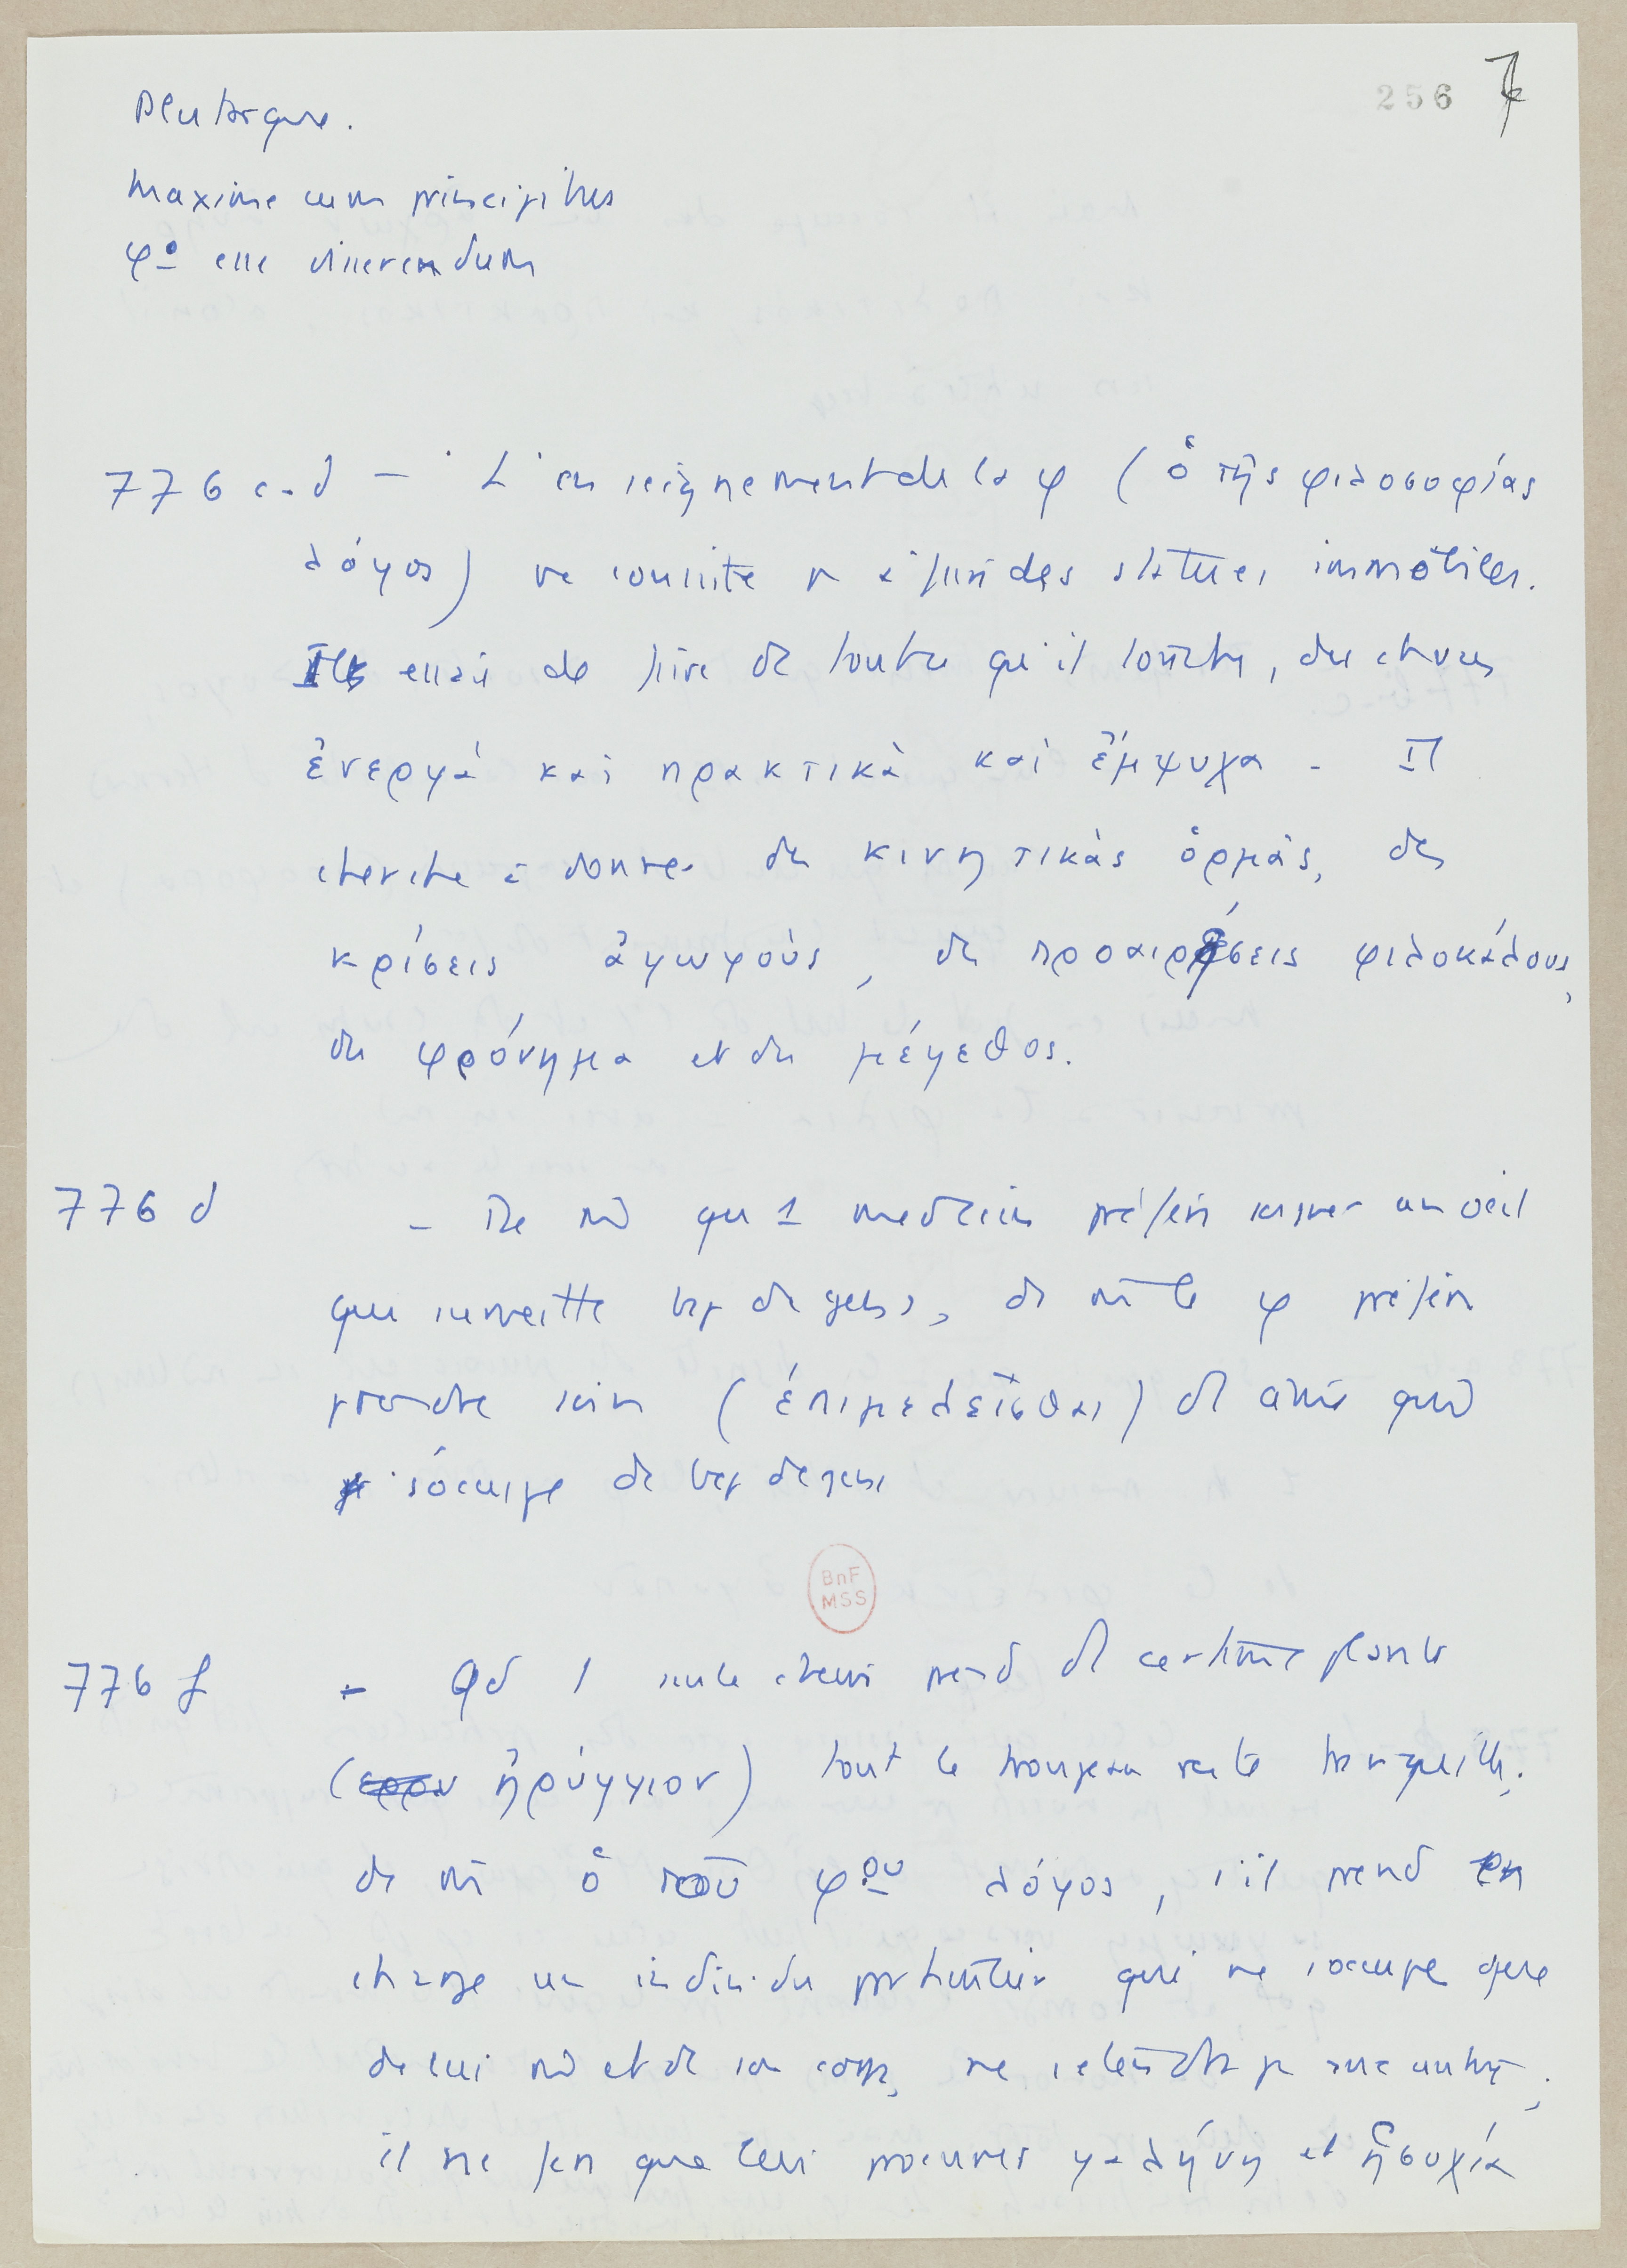 256 7
Plutarque.
Maxime cum principibus
φo esse disserendum
776 c-d – L'enseignement de la φ (ὁ τῆς φιλοσοφίας
λόγος) ne consiste p à faire des statues immobiles.
Il essaie de faire de toutes qu'il touche, des choses
ἐνεργὰ καὶ πρακτικὰ καὶ ἔμψυχα – Il
cherche à donner des κινητικὰς ὁρμάς, des
κρίσεις ἀγωγούς, des προαιρέσεις φιλοκάλους,
du φρόνημα et du μέγεθος.
776 d – De m̂ qu 1 médecin préfère soigner un oeil
qui surveille bcp de gens, de m̂ le φ préfère
prendre soin (ἐπιμελεῖσθαι) d' âme qui
s'occupe de bcp de gens
BnF
MSS
776 f – Qd 1 seule chèvre prend d certaine plante
(ερρυ ἠρύγγιον) tout le troupeau reste tranquille.
de m̂ ὁ τοῦ φου λόγος, s'il prend en
charge un individu particulier qui ne s'occupe que
de lui m̂ et de son corps, ne s'étend p aux autres;
il ne fait que lui procurer γαλήνη et ἡσυχία